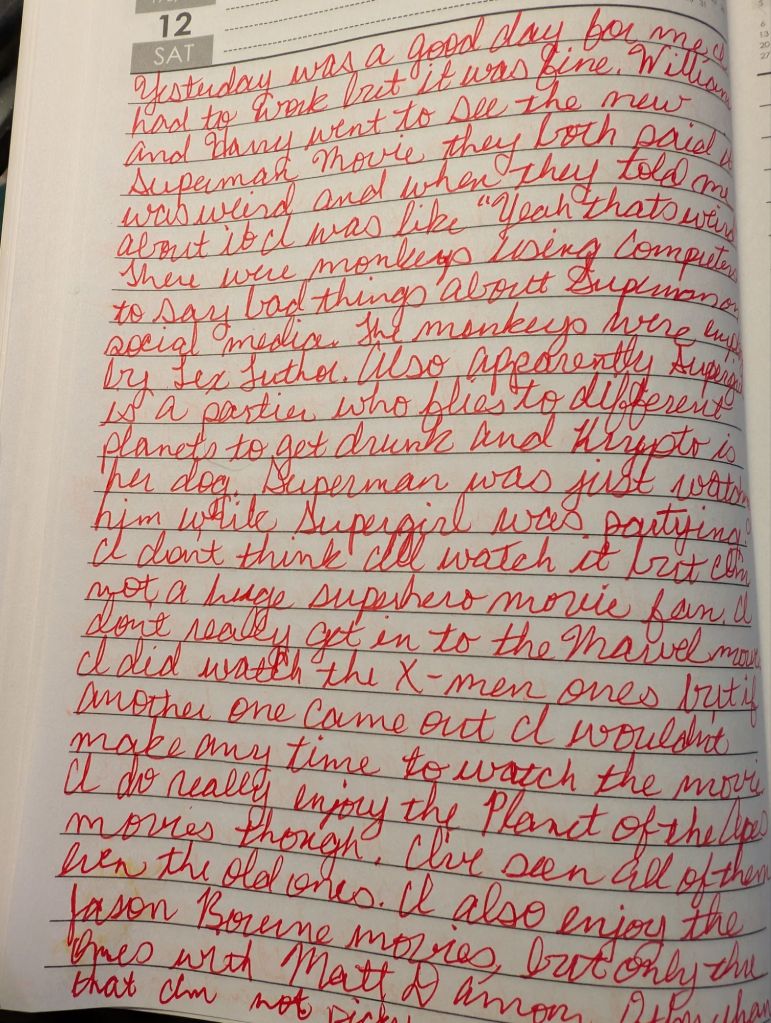 12
SAT
Yesterday was a good day for me, I
had to work but it was fine. William
and Harry went to see the new
Superman Movie they both said it
was weird and when they told me
about it I was like "Yeah thats weird
There were monkeys using Computers
to say bad things about Superman on
social media. The monkeys were
by Lex Luthor. Also apparently Supergirl
is a partier who flies to different
planets to get drunk and Krypto is
her dog. Superman was just
him while Supergirl was partying.
I dont think Ill watch it but Im
not a huge superhero movie fan. I
dont really got in to the Marvel
I did watch the X-men ones but if
another one came out I wouldnt
make any time to watch the movie
I do really enjoy the Planet of the Apes
movies though. I've seen all of them
even the old ones. I also enjoy the
Jason Bourne movies, but only the
ones with Matt Damon. Other than
that Im not picky